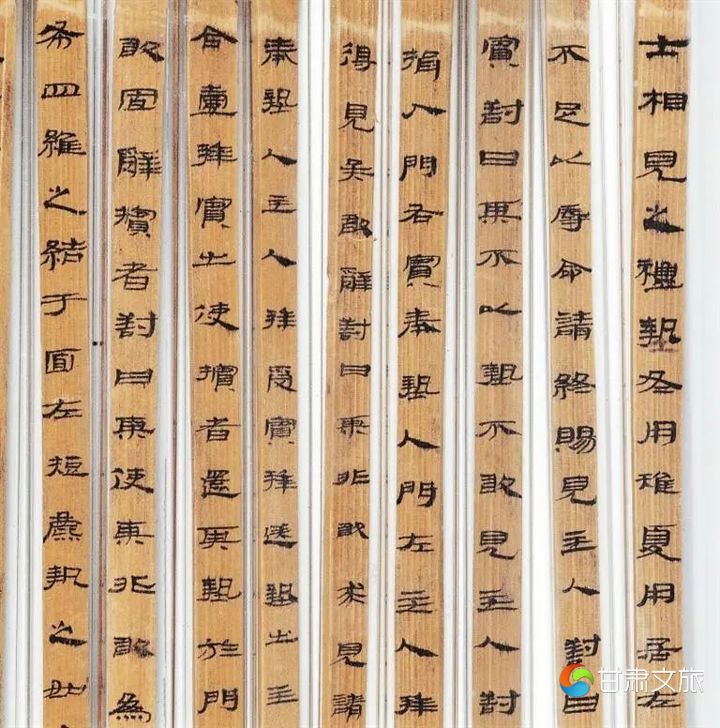 士相見之禮摯冬用稚夏用居左
不足以辱命請終賜見主人對曰
賓對曰某不以摯不敢見主人對
揖入門右賓奉摯入門左主人拜
得見矣敢辭對曰某非敢求見請
奉摯入主人拜受賓拜送摯出主
合壹拜賓出使擯者還其摯於門
敢固辭擯者對曰某使某非敢為
布四維之結于面左執之如
甘肃文旅